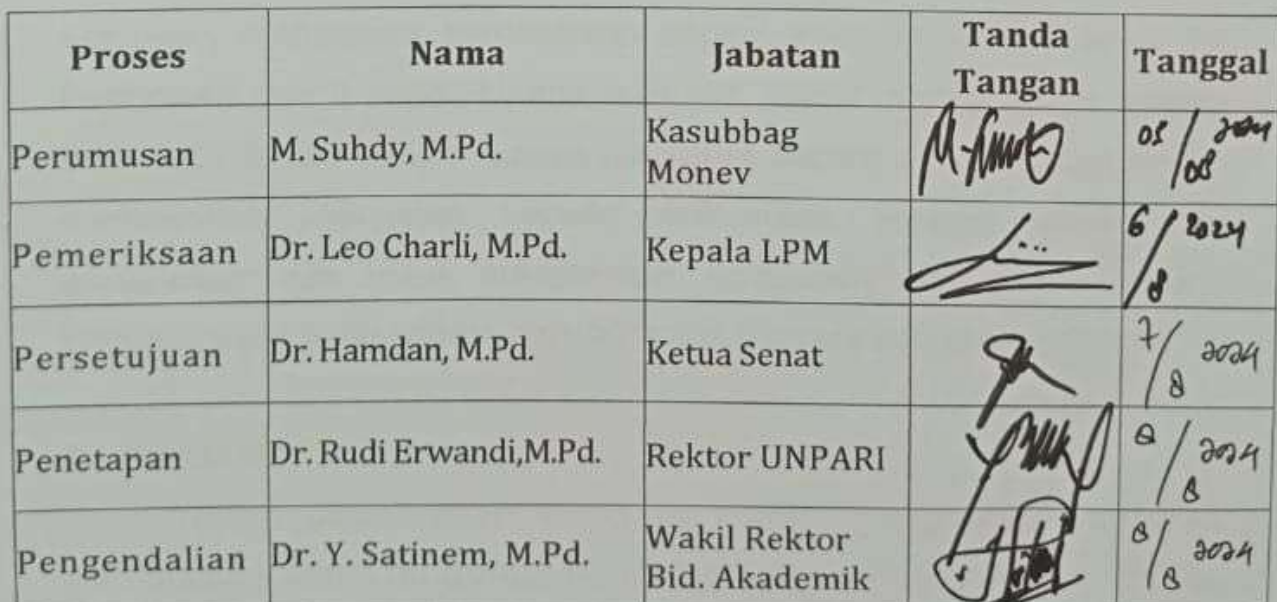 Proses Nama Jabatan Tanda Tangan Tanggal
Perumusan M. Suhdy, M.Pd. Kasubbag Monev 05/08 2024
Pemeriksaan Dr. Leo Charli, M.Pd. Kepala LPM 6/8 2024
Persetujuan Dr. Hamdan, M.Pd. Ketua Senat 7/8 2024
Penetapan Dr. Rudi Erwandi,M.Pd. Rektor UNPARI 8/8 2024
Pengendalian Dr. Y. Satinem, M.Pd. Wakil Rektor Bid. Akademik 8/8 2024